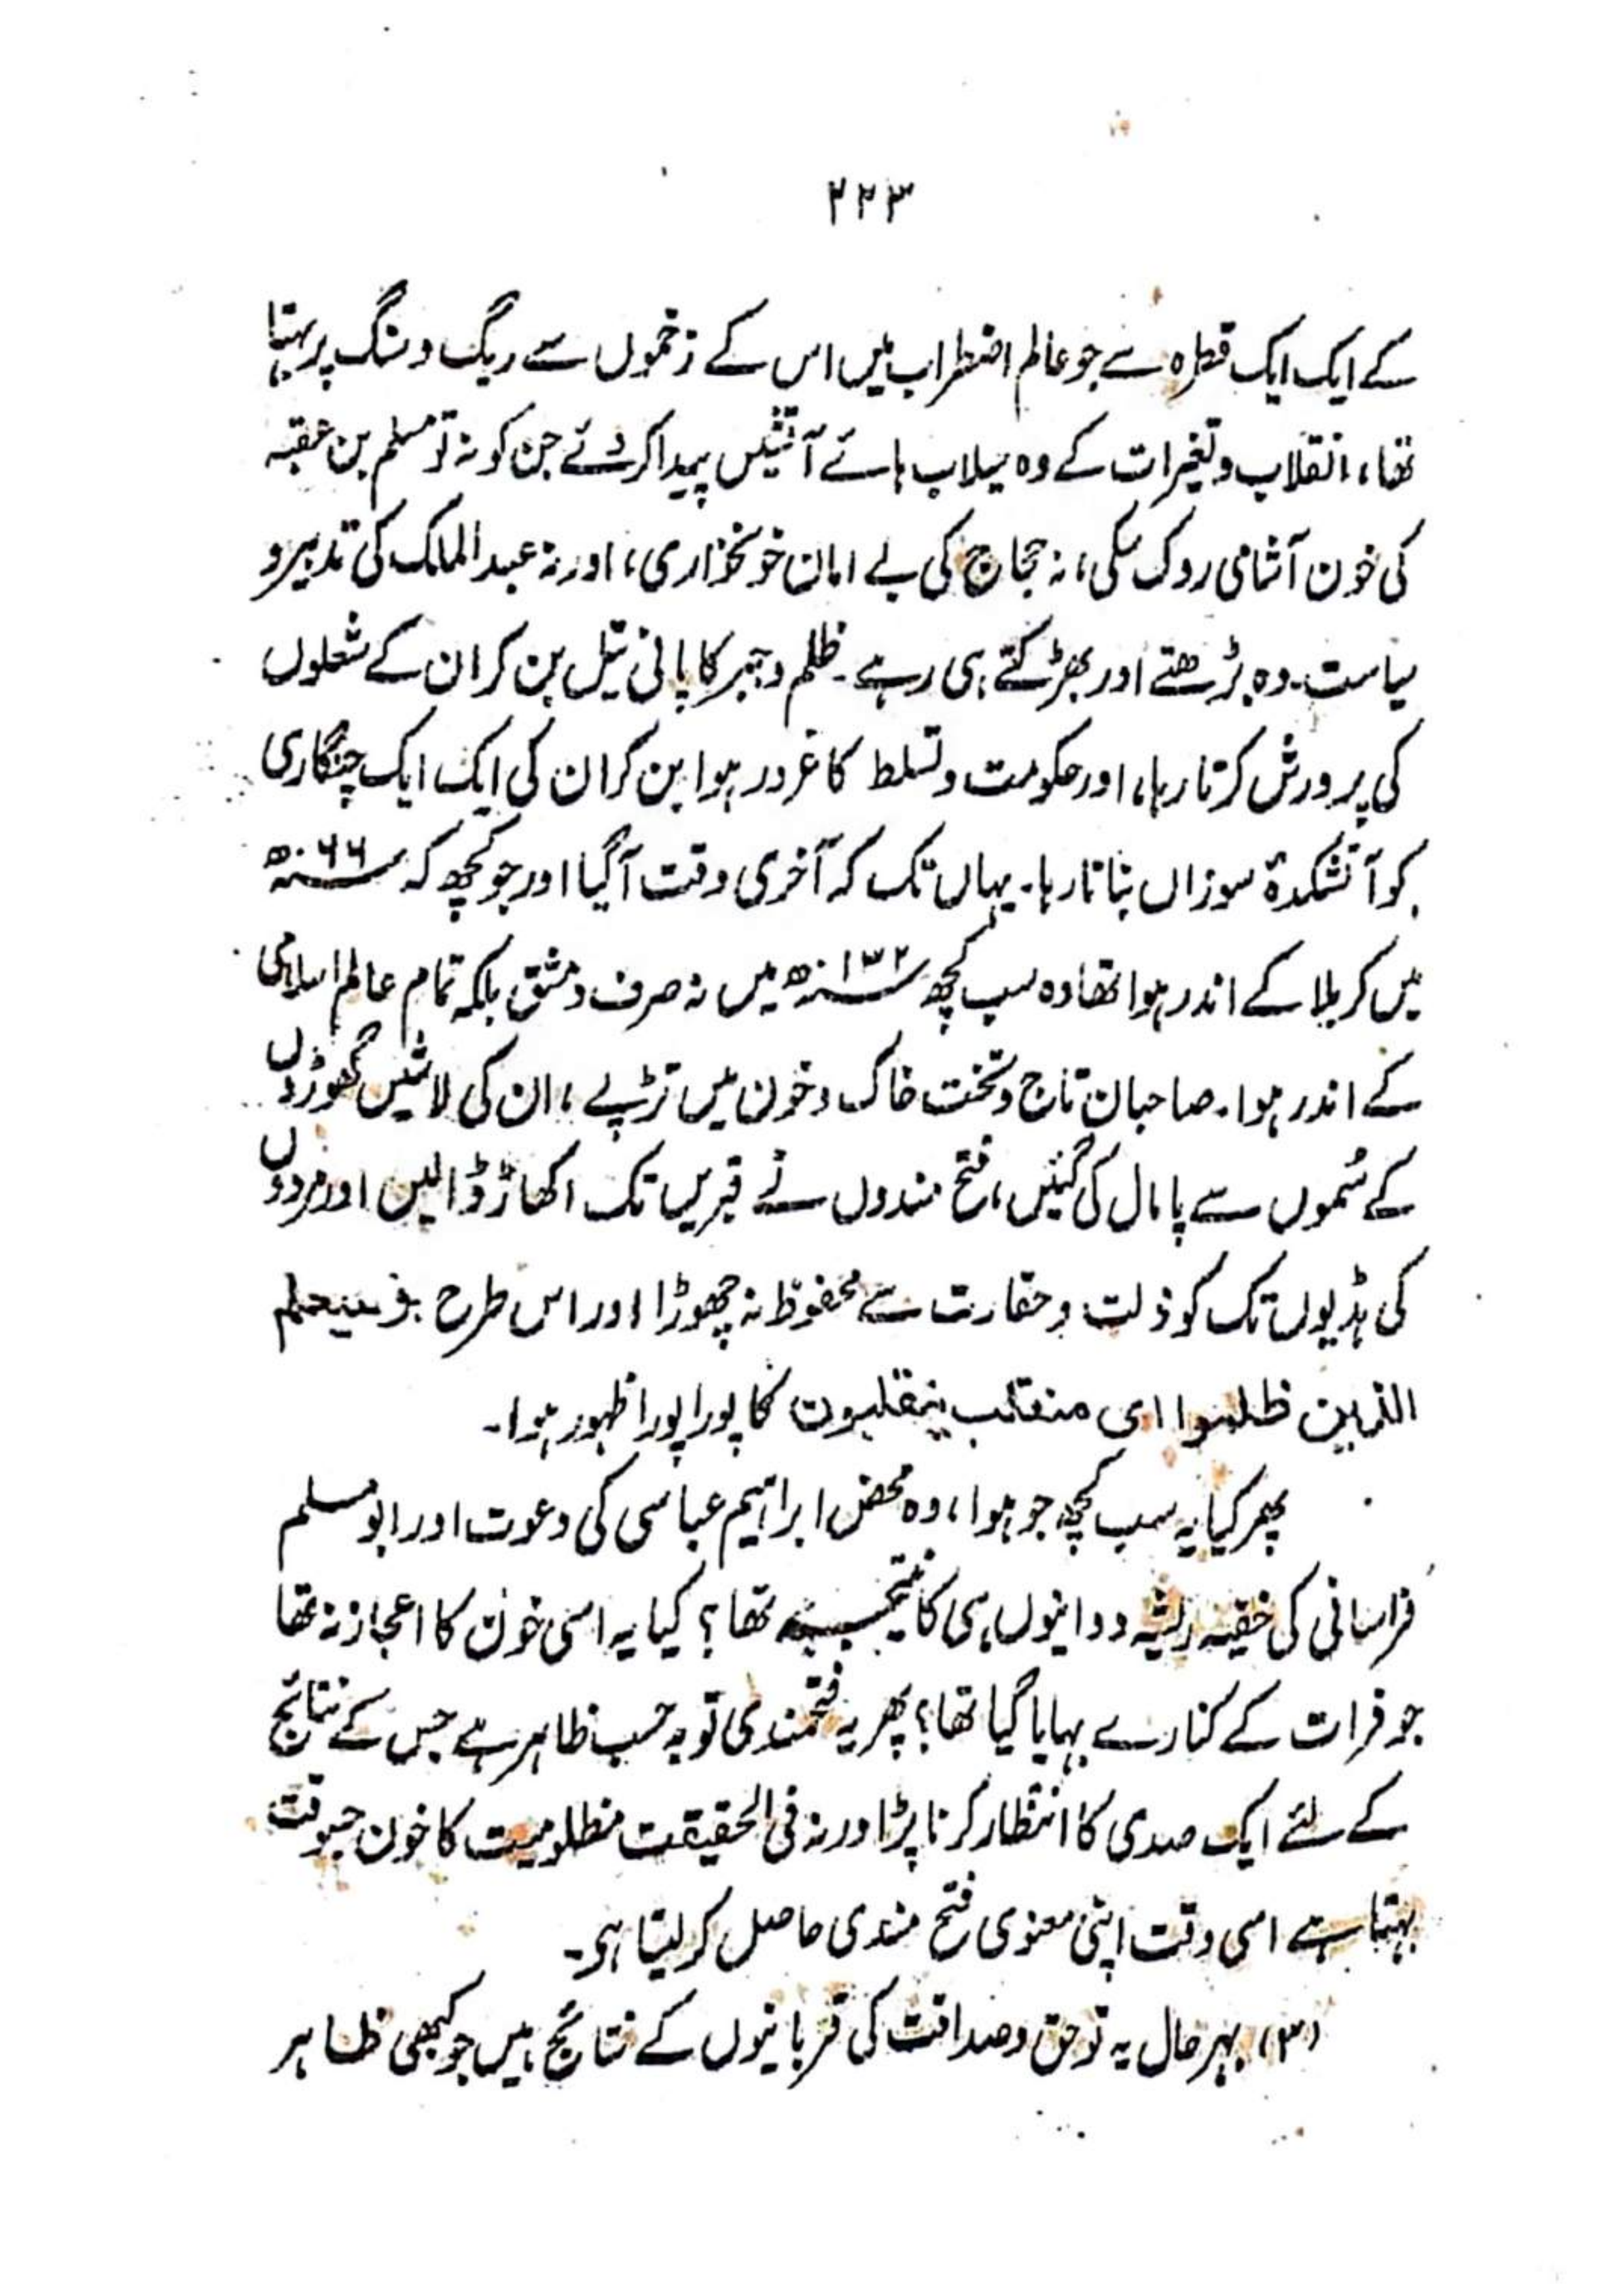 ۲۲۳
کے ایک ایک قطرہ سے جو عالم اضطراب میں اس کے زخموں سے ریگ و سنگ پر بہتا
تھا، انقلاب و تغیرات کے وہ سیلاب ہائے آتشیں پیدا کردئے جن کو نہ تو مسلم بن عقبہ
کی خون آشامی روک سکی، نہ حجاج کی بے امان خونخواری، اور نہ عبدالملک کی تدبیر و
سیاست۔ وہ بڑھتے اور بھڑکتے ہی رہے۔ ظلم و جبر کا پانی تیل بن کر ان کے شعلوں
کی پرورش کرتا رہا، اور حکومت و تسلط کا غرور ہوا بن کر ان کی ایک ایک چنگاری
کو آتشکدۂ سوزاں بناتا رہا۔ یہاں تک کہ آخری وقت آگیا اور جو کچھ کہ ۶۶؁ھ
میں کربلا کے اندر ہوا تھا وہ سب کچھ ۱۳۲؁ھ میں نہ صرف دمشق بلکہ تمام عالم اسلامی
کے اندر ہوا۔ صاحبان تاج و تخت خاک و خون میں تڑپے، ان کی لاشیں گھوڑوں
کے سُموں سے پامال کی گئیں، فتح مندوں نے قبریں تک اکھاڑ ڈالیں اور مردوں
کی ہڈیوں تک کو ذلت و حقارت سے محفوظ نہ چھوڑا اور اس طرح وسیعلم
الذین ظلموا ای منقلب ینقلبون کا پورا پورا ظہور ہوا۔
پھر کیا یہ سب کچھ جو ہوا، وہ محض ابراہیم عباسی کی دعوت اور ابو مسلم
خراسانی کی خفیہ ریشہ دوانیوں ہی کا نتیجہ تھا؟ کیا یہ اسی خون کا اعجاز نہ تھا
جو فرات کے کنارے بہایا گیا تھا؟ پھر یہ فتحمندی تو بہ حسب ظاہر ہے جس کے نتائج
کے لئے ایک صدی کا انتظار کرنا پڑا ورنہ فی الحقیقت مظلومیت کا خون جسوقت
بہتا ہے اسی وقت اپنی معنوی فتح مندی حاصل کرلیتا ہی۔
(۳) بہرحال یہ تو حق و صداقت کی قربانیوں کے نتائج ہیں جو کبھی ظاہر